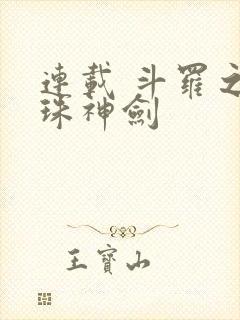 連載 斗羅之
珠神劍
王寶山